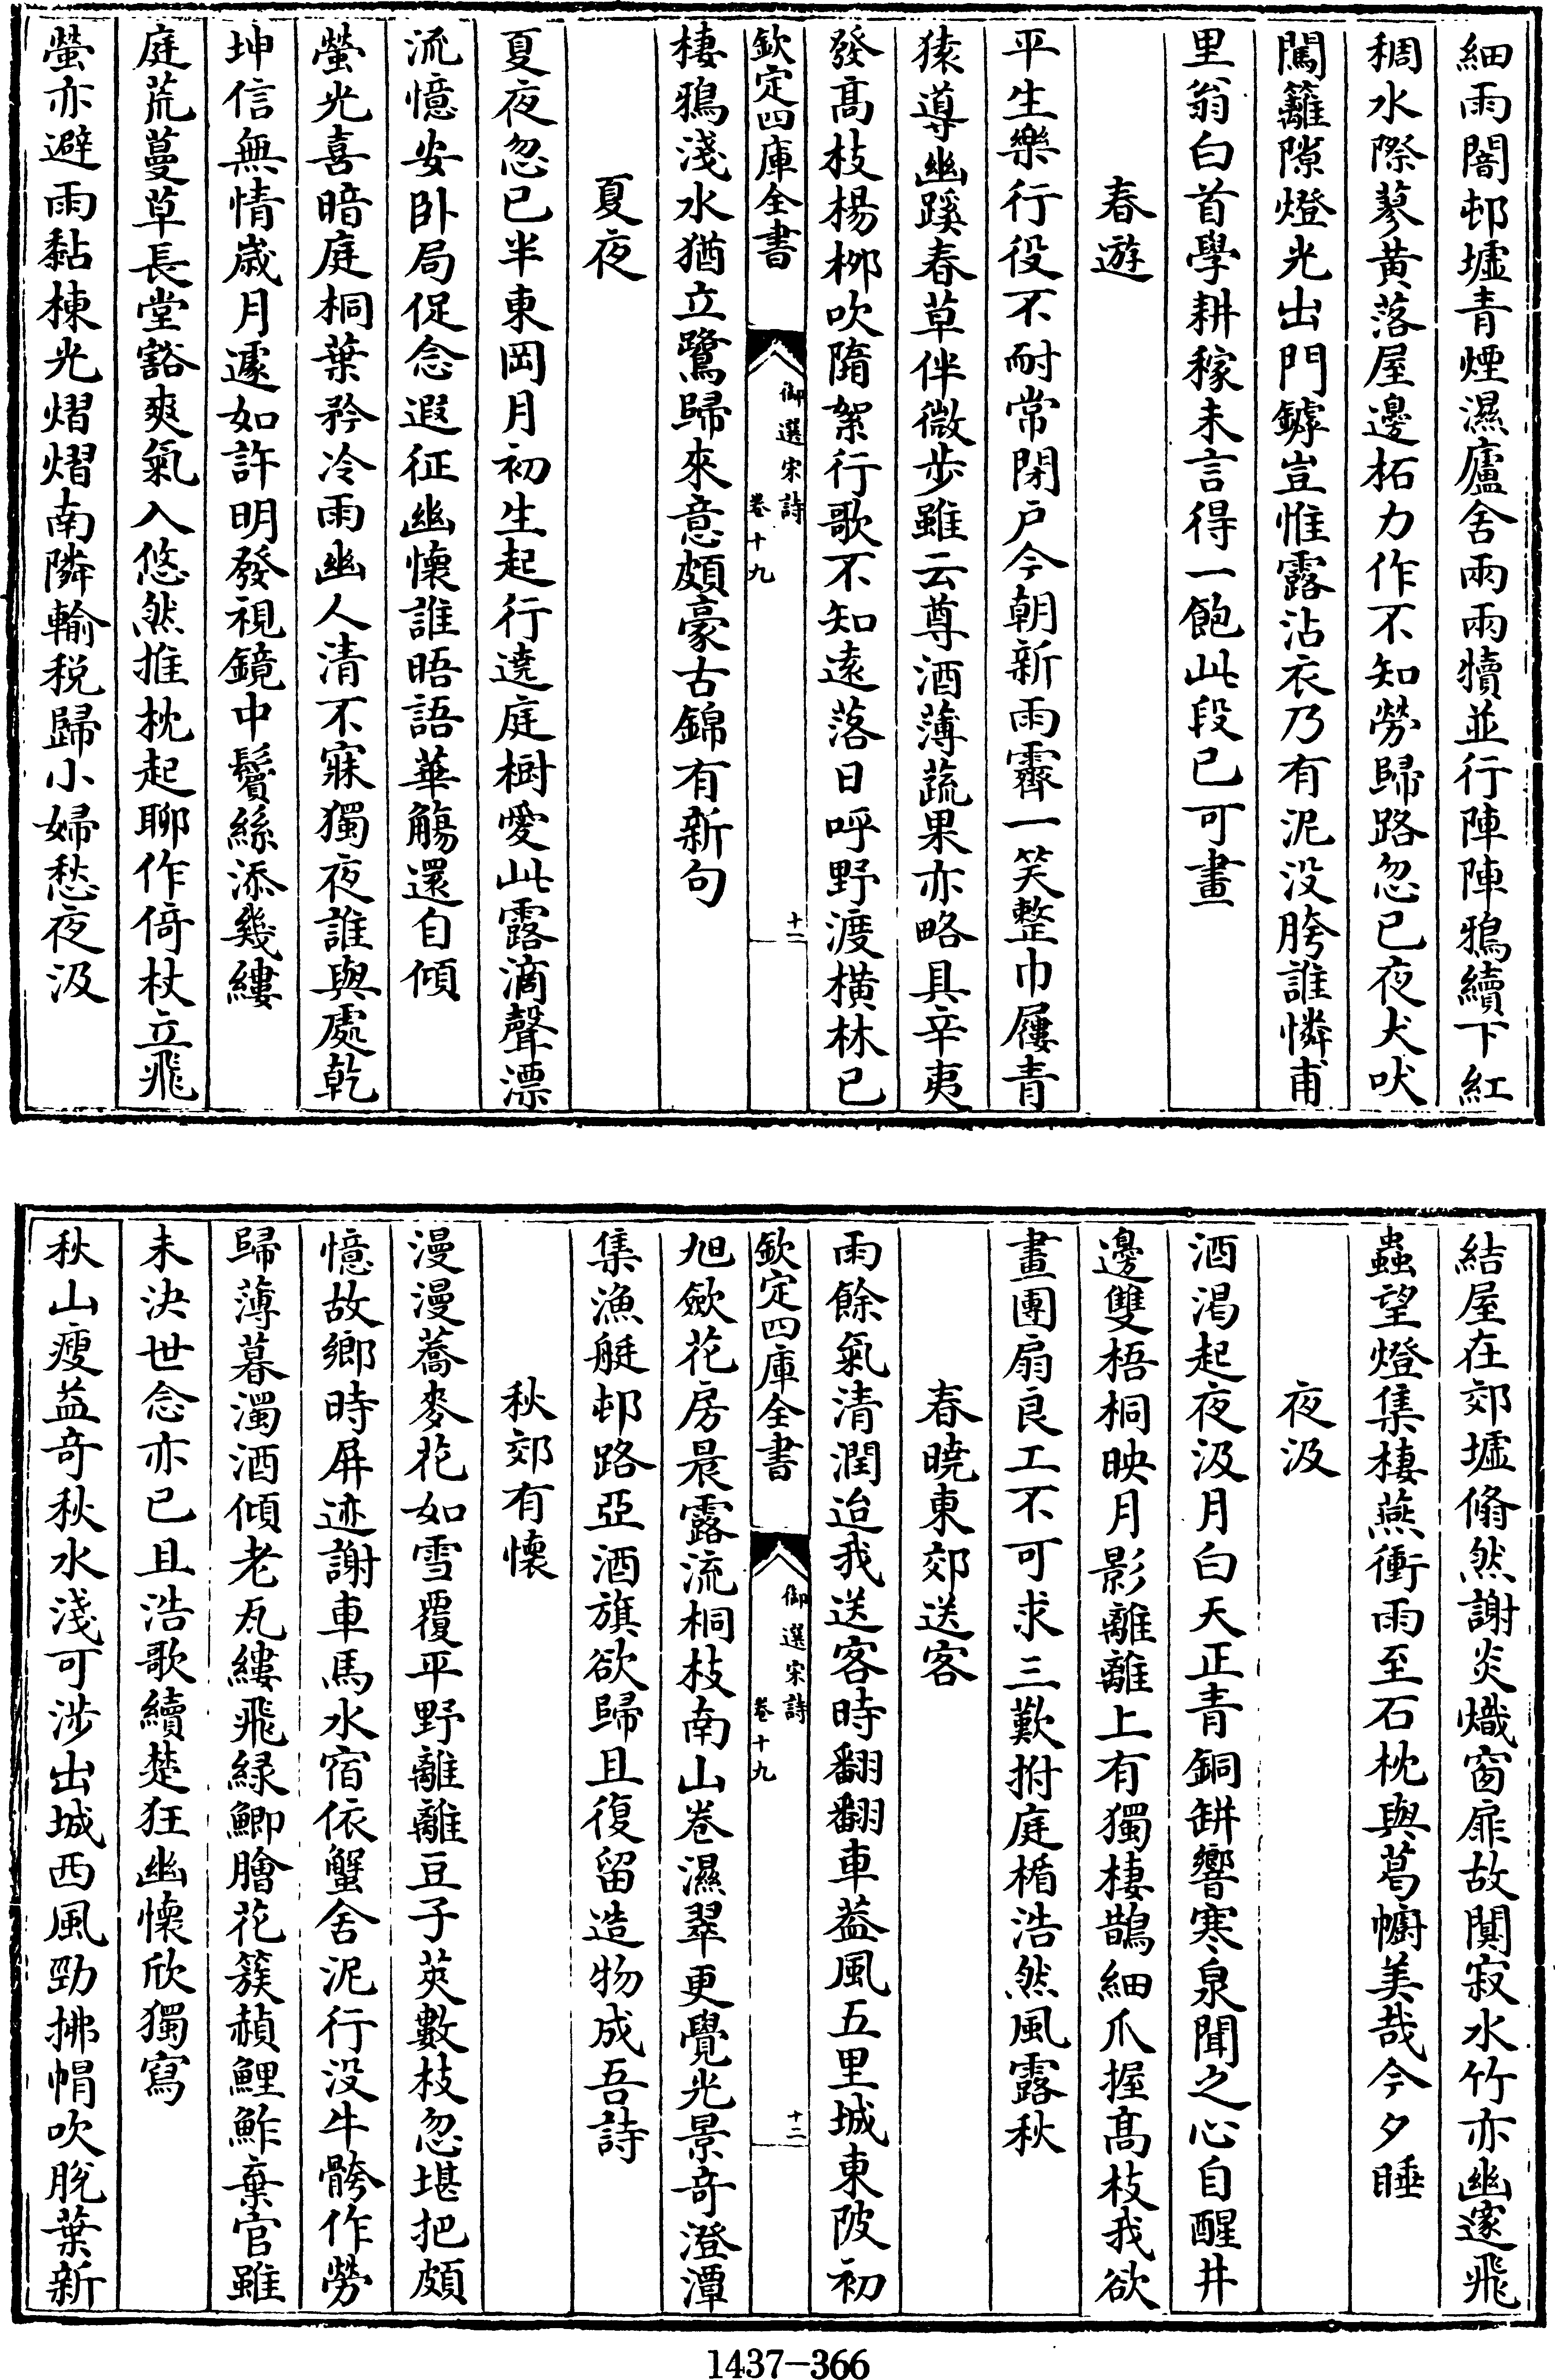 細雨闇邨墟青煙濕廬舍兩兩犢並行陣陣鴉續下紅
稠水際蓼黃落屋邊柘力作不知勞歸路忽已夜犬吠
闖籬隙燈光出門鏬豈惟露沾衣乃有泥没胯誰憐甫
里翁白首學耕稼未言得一飽此段已可畫
春遊
平生樂行役不耐常閉户今朝新雨霽一笑整巾屨青
猿導幽蹊春草伴微步雖云尊酒薄蔬果亦略具辛夷
發髙枝楊栁吹隋絮行歌不知遠落日呼野渡橫林已
欽定四庫全書
御選宋詩
卷十九
十一
棲鴉淺水猶立鷺歸來意頗豪古錦有新句
夏夜
夏夜忽已半東岡月初生起行遶庭樹愛此露滴聲漂
流憶安卧局促念遐征幽懷誰晤語華觴還自傾
螢光喜暗庭桐葉矜冷雨幽人清不寐獨夜誰與處乾
坤信無情歲月遽如許明發視鏡中鬢絲添幾縷
庭荒蔓草長堂豁爽氣入悠然推枕起聊作倚杖立飛
螢亦避雨黏楝光熠熠南隣輸税歸小婦愁夜汲
結屋在郊墟翛然謝炎熾窗扉故闃寂水竹亦幽邃飛
蟲望燈集棲燕衝雨至石枕與葛幮美哉今夕睡
夜汲
酒渴起夜汲月白天正青銅缾響寒泉聞之心自醒井
邊雙梧桐映月影離離上有獨棲鵲細爪握髙枝我欲
畫團扇良工不可求三歎拊庭楯浩然風露秋
春曉東郊送客
雨餘氣清潤迨我送客時翻翻車葢風五里城東陂初
欽定四庫全書
御選宋詩
卷十九
十二
旭歛花房晨露流桐枝南山卷濕翠更覺光景奇澄潭
集漁艇邨路亞酒旗欲歸且復留造物成吾詩
秋郊有懷
漫漫蕎麥花如雪覆平野離離豆子莢數枝忽堪把頗
憶故鄉時屏迹謝車馬水宿依蟹舍泥行没牛骻作勞
歸薄暮濁酒傾老瓦縷飛緑鯽膾花簇赬鯉鮓棄官雖
未決世念亦已且浩歌續楚狂幽懷欣獨寫
秋山瘦益奇秋水淺可涉出城西風勁拂帽吹脫葉新
1437-366